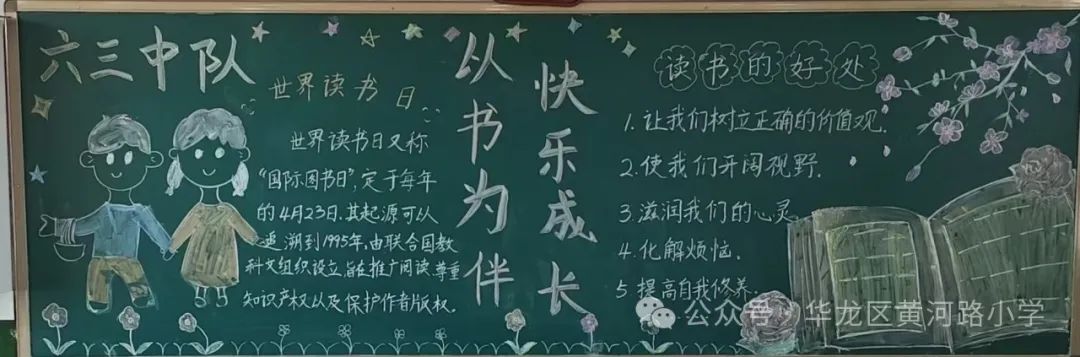 六三中队
世界读书日
世界读书日又称
“国际图书日”,定于每年
的4月23日.其起源可以
追溯到1995年,由联合国教
科文组织设立,旨在推广阅读,尊重
知识产权以及保护作者版权。
从书为伴
快乐成长
读书的好处
1. 让我们树立正确的价值观.
2. 使我们开阔视野.
3. 滋润我们的心灵
4. 化解烦恼.
5. 提高自我修养.
公众号·华龙区黄河路小学